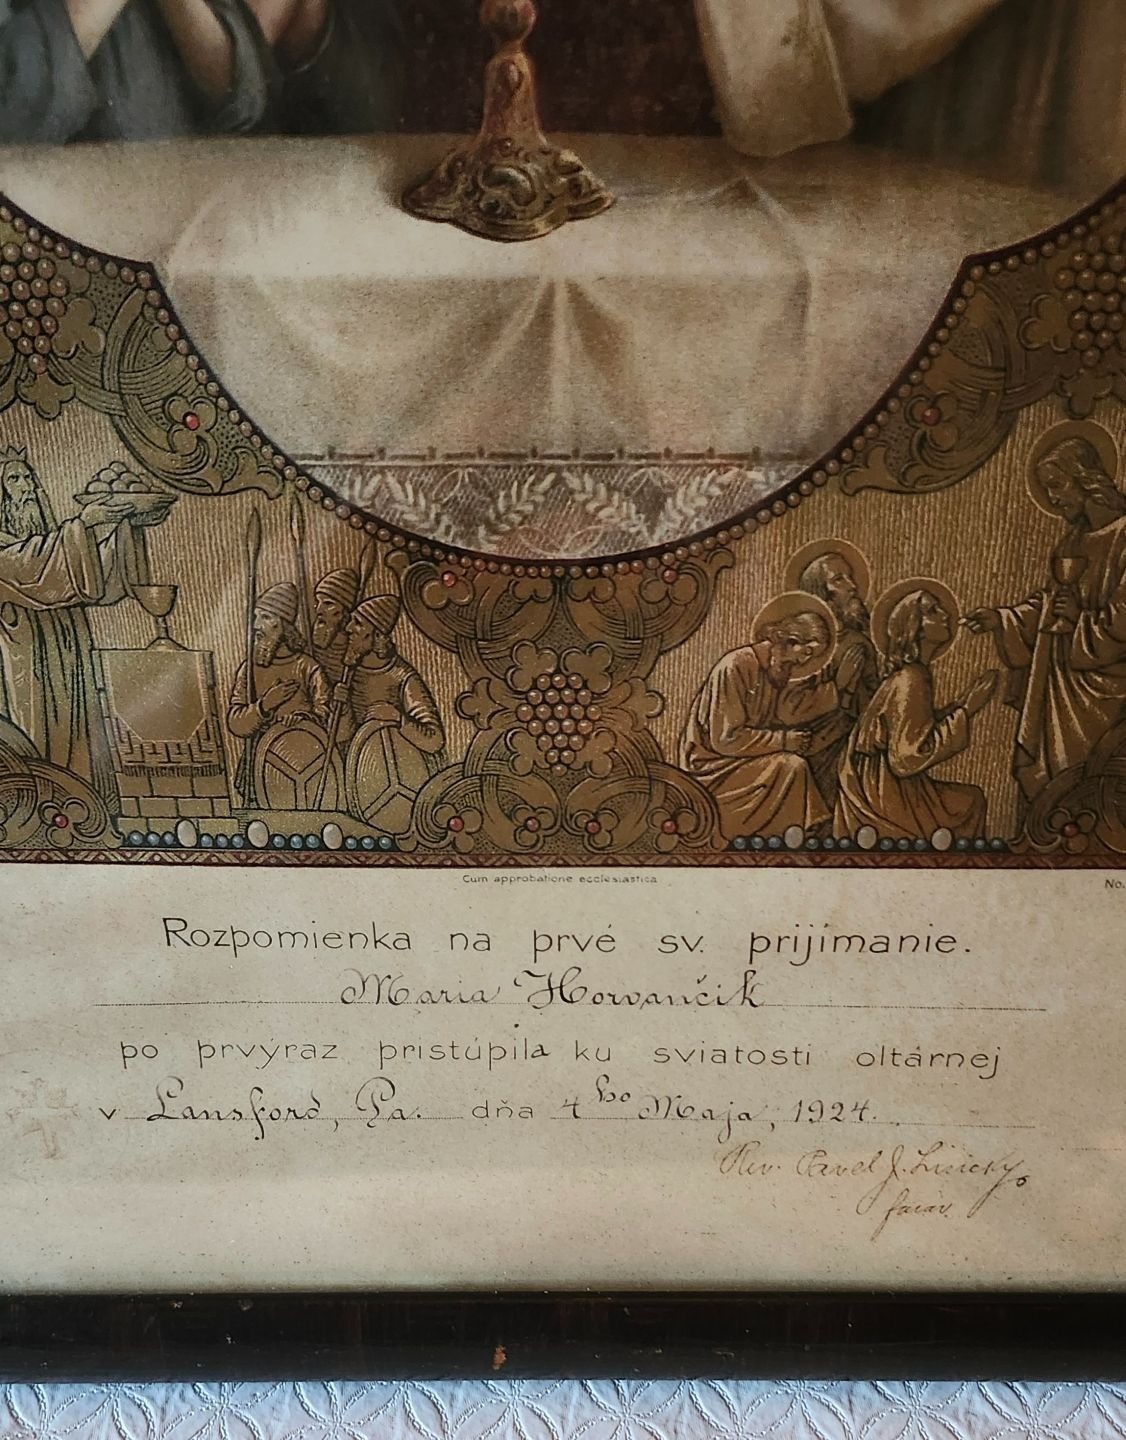 Cum approbatione ecclesiastica
No.
Rozpomienka na prvé sv. prijímanie.
Maria Horvančik
po prvýraz pristúpila ku sviatosti oltárnej
v Lansford, Pa. dňa 4ho Maja, 1924.
Rev. Pavel J. Lisicky
farár.